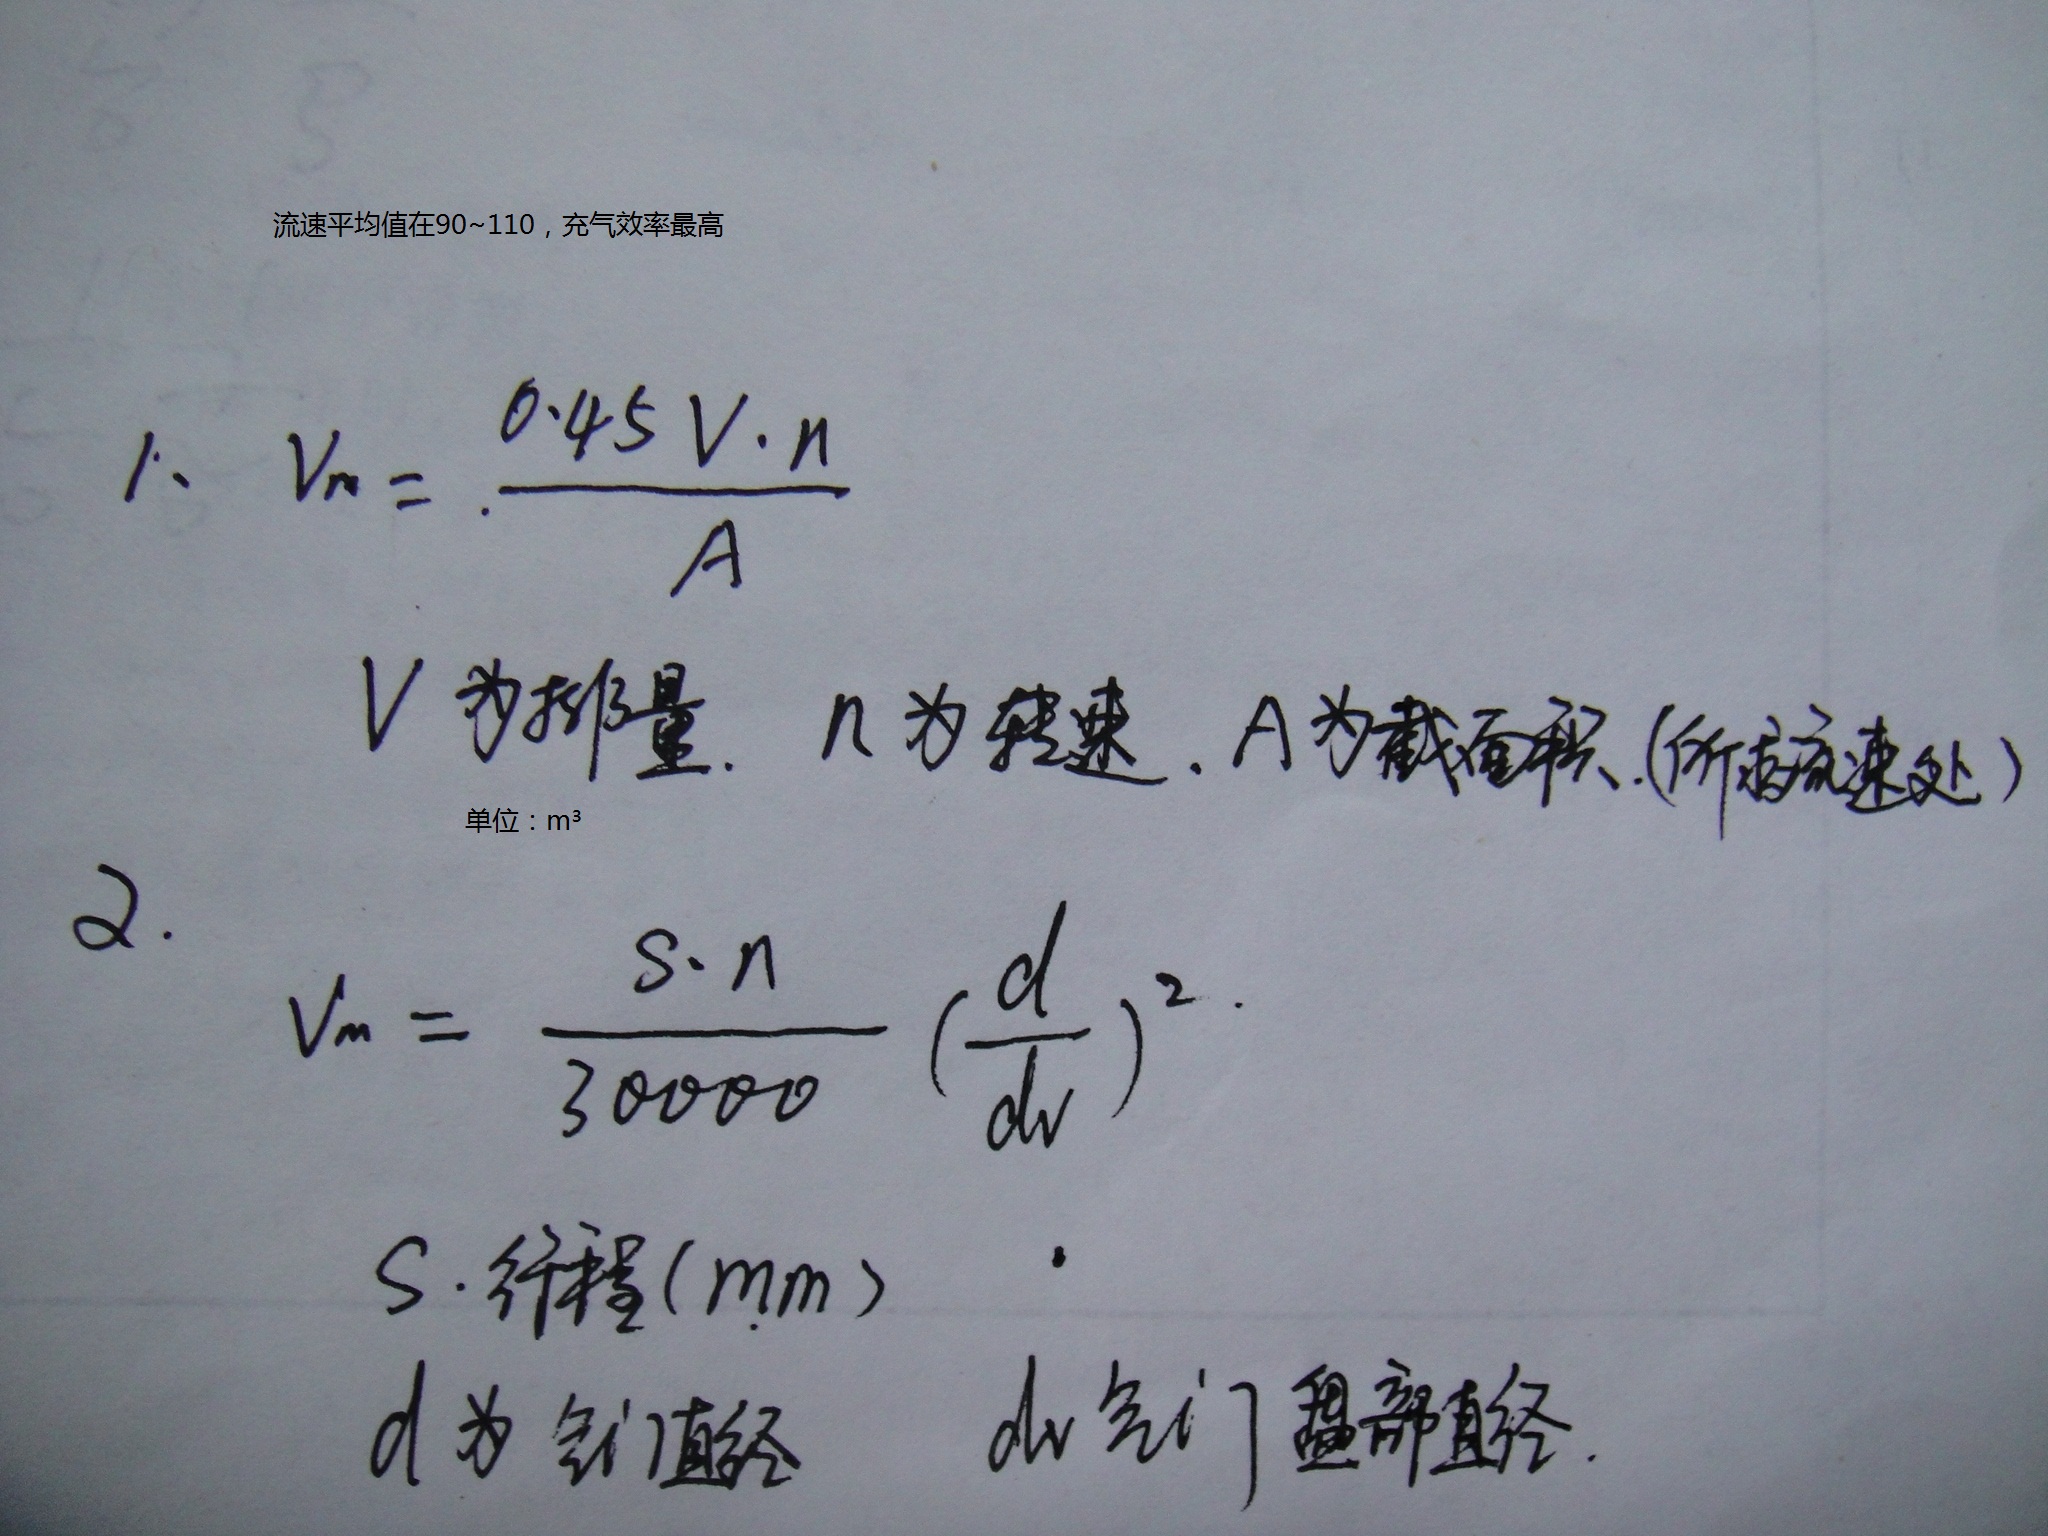 流速平均值在90~110，充气效率最高
1、 Vm = 0.45 V·n / A
V 为排量. n 为转速. A为截面积.(所求流速处)
单位：m³
2.
Vm = S·n / 30000 (d / dv)².
S.行程(mm)
d 为 气门直径 dv 气门 盘部直径.